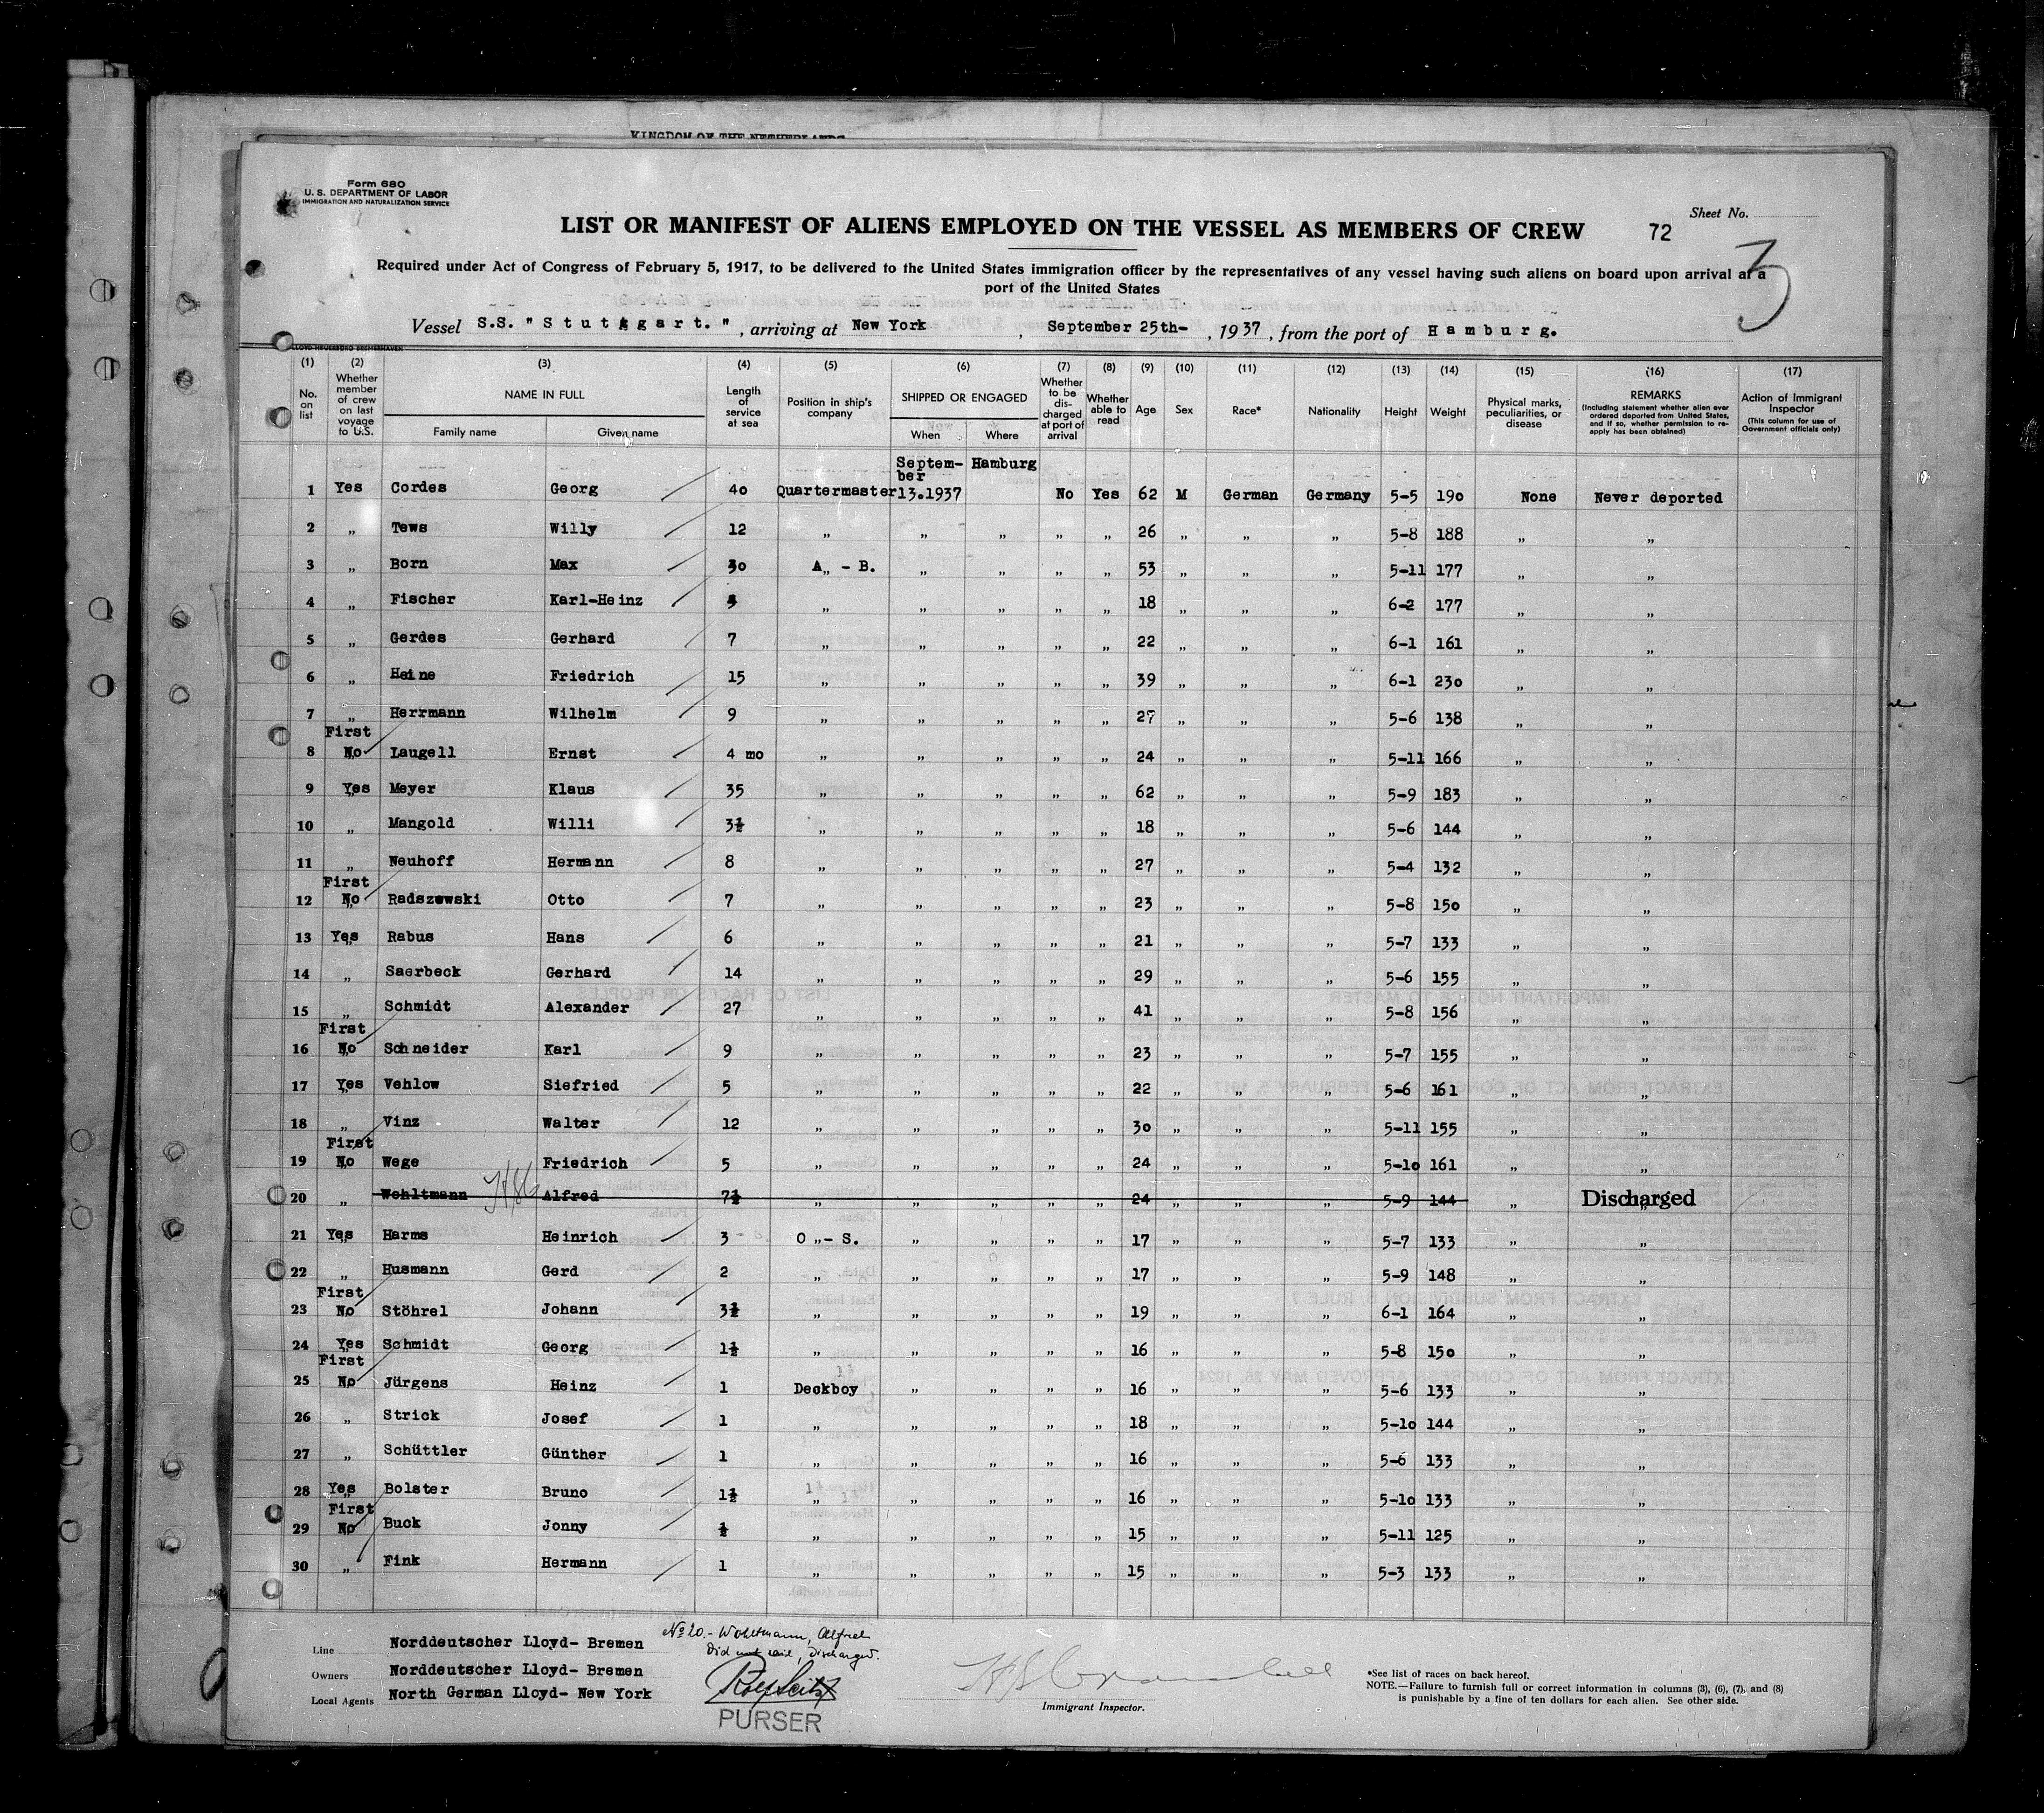 KINGDOM OF THE NETHERLANDS
Form 680
U. S. DEPARTMENT OF LABOR
IMMIGRATION AND NATURALIZATION SERVICE
Sheet No.
LIST OR MANIFEST OF ALIENS EMPLOYED ON THE VESSEL AS MEMBERS OF CREW 72
3
Required under Act of Congress of February 5, 1917, to be delivered to the United States immigration officer by the representatives of any vessel having such aliens on board upon arrival at a
port of the United States
Vessel S.S. "Stuttgart.", arriving at New York, September 25th-, 1937, from the port of Hamburg.
(1) (2) (3) (4) (5) (6) (7) (8) (9) (10) (11) (12) (13) (14) (15) (16) (17)
No. on list Whether member of crew on last voyage to U.S. NAME IN FULL Family name Given name Length of service at sea Position in ship's company SHIPPED OR ENGAGED When Where Whether to be discharged at port of arrival Whether able to read Age Sex Race* Nationality Height Weight Physical marks, peculiarities, or disease REMARKS (Including statement whether alien ever ordered deported from United States, and if so, whether permission to reapply has been obtained) Action of Immigrant Inspector (This column for use of Government officials only)
1 Yes Cordes Georg 40 Quartermaster September 13.1937 Hamburg No Yes 62 M German Germany 5-5 190 None Never deported
2 „ Tews Willy 12 „ „ „ „ „ 26 „ „ „ 5-8 188 „ „
3 „ Born Max 30 A„ - B. „ „ „ „ 53 „ „ „ 5-11 177 „ „
4 „ Fischer Karl-Heinz „ „ „ „ „ 18 „ „ „ 6-2 177 „ „
5 „ Gerdes Gerhard 7 „ „ „ „ „ 22 „ „ „ 6-1 161 „ „
6 „ Heine Friedrich 15 „ „ „ „ „ 39 „ „ „ 6-1 230 „ „
7 „ Herrmann Wilhelm 9 „ „ „ „ „ 27 „ „ „ 5-6 138 „ „
8 First No Laugell Ernst 4 mo „ „ „ „ „ 24 „ „ „ 5-11 166 „ „
9 Yes Meyer Klaus 35 „ „ „ „ „ 62 „ „ „ 5-9 183 „ „
10 „ Mangold Willi 3½ „ „ „ „ „ 18 „ „ „ 5-6 144 „ „
11 „ Neuhoff Hermann 8 „ „ „ „ „ 27 „ „ „ 5-4 132 „ „
12 First No Radszewski Otto 7 „ „ „ „ „ 23 „ „ „ 5-8 150 „ „
13 Yes Rabus Hans 6 „ „ „ „ „ 21 „ „ „ 5-7 133 „ „
14 „ Saerbeck Gerhard 14 „ „ „ „ „ 29 „ „ „ 5-6 155 „ „
15 „ Schmidt Alexander 27 „ „ „ „ „ 41 „ „ „ 5-8 156 „ „
16 First No Schneider Karl 9 „ „ „ „ „ 23 „ „ „ 5-7 155 „ „
17 Yes Vehlow Siefried 5 „ „ „ „ „ 22 „ „ „ 5-6 161 „ „
18 „ Vinz Walter 12 „ „ „ „ „ 30 „ „ „ 5-11 155 „ „
19 First No Wege Friedrich 5 „ „ „ „ „ 24 „ „ „ 5-10 161 „ „
20 „ Wohltmann Alfred 7½ „ „ „ „ „ 24 „ „ „ 5-9 144 „ Discharged
21 Yes Harms Heinrich 3 O „- S. „ „ „ „ 17 „ „ „ 5-7 133 „ „
22 „ Husmann Gerd 2 „ „ „ „ „ 17 „ „ „ 5-9 148 „ „
23 First No Stöhrel Johann 3½ „ „ „ „ „ 19 „ „ „ 6-1 164 „ „
24 Yes Schmidt Georg 1½ „ „ „ „ „ 16 „ „ „ 5-8 150 „ „
25 First No Jürgens Heinz 1 Deckboy „ „ „ „ 16 „ „ „ 5-6 133 „ „
26 „ Strick Josef 1 „ „ „ „ „ 18 „ „ „ 5-10 144 „ „
27 „ Schüttler Günther 1 „ „ „ „ „ 16 „ „ „ 5-6 133 „ „
28 Yes Bolster Bruno 1½ „ „ „ „ „ 16 „ „ „ 5-10 133 „ „
29 First No Buck Jonny ½ „ „ „ „ „ 15 „ „ „ 5-11 125 „ „
30 „ Fink Hermann 1 „ „ „ „ „ 15 „ „ „ 5-3 133 „ „
No 20.- Wohltmann, Alfred
Did not sail, Discharged.
Line Norddeutscher Lloyd- Bremen
Owners Norddeutscher Lloyd- Bremen
Local Agents North German Lloyd- New York
PURSER
Immigrant Inspector.
*See list of races on back hereof.
NOTE.—Failure to furnish full or correct information in columns (3), (6), (7), and (8)
is punishable by a fine of ten dollars for each alien. See other side.